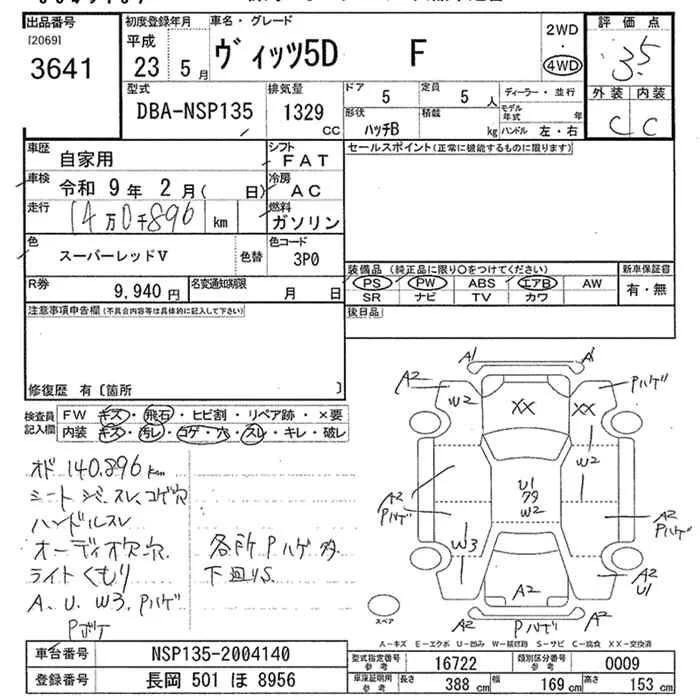 出品番号
[2069]
3641
初度登録年月
平成
23 5 月
車名・グレード
ヴィッツ5D F
2WD
・
4WD
評価点
3.5
外装 内装
C C
型式
DBA-NSP135
排気量
1329
CC
ドア 5
定員 5 人
ディーラー・並行
形状
ハッチB
積載
kg
モデル年式 年
ハンドル 左・右
車歴
自家用
シフト
FAT
セールスポイント(正常に機能するものに限ります)
車検
令和 9 年 2 月( 日)
冷房
AC
走行
14万0千896 km
燃料
ガソリン
色
スーパーレッドV
色替
色コード
3P0
R券
9,940 円
名変通知期限
月 日
装備品(純正品に限り○をつけてください)
新車保証書
PS PW ABS エアB AW
有・無
SR ナビ TV カワ
注意事項申告欄(不具合内容等は具体的に記入して下さい)
後日品
修復歴 有〔箇所 〕
検査員記入欄
FW キズ・飛石・ヒビ割・リペア跡・×要
内装 キズ・汚レ・コゲ・穴・スレ・キレ・破レ
オド 140,896km
シート シミ スレ コゲ穴
ハンドルスレ
オーディオ欠穴
ライトくもり
A、U、W3、Pハゲ
Pボケ
各所Pハゲ多
下廻りS
A1 A1
A2 W2 XX XX Pハゲ
W2
A2 Pハゲ
U1
79
W2
A2 Pハゲ
W3
A2
A2 U1
A2 Pハゲ A2
スペア
A-キズ E-エクボ U-凹み W-補修跡 S-サビ C-腐食 XX-交換済
車台番号
NSP135-2004140
型式指定番号
参考
16722
類別区分番号
参考
0009
登録番号
長岡 501 ほ 8956
車庫証明用
参考
長さ 388 cm
幅 169 cm
高さ 153 cm